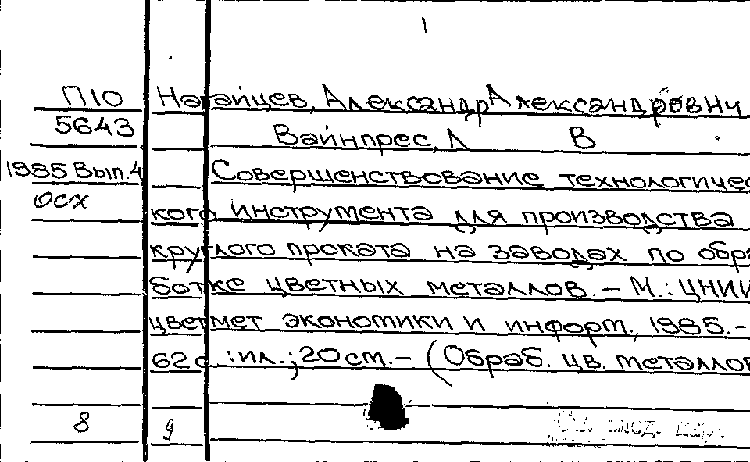 1
П10 Нагайцев, Александр Александрович
5643 Вайнпрес, Л В
1985 Вып.4 Совершенствование технологичес
осх кого инструмента для производства
круглого проката на заводах по обра
ботке цветных металлов. – М.: ЦНИИ
цветмет экономики и информ., 1985. –
62 с. : ил.; 20 см. – (Обраб. цв. металлов
8 9